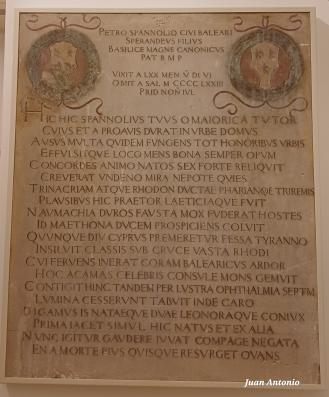 PETRO SPANNOLIO CIVI BALEARI
SPERANDEVS FILIVS
BASILICE MAGNE CANONICVS
PAT B M P
VIXIT A LXX MEN V DI VI
OBIIT A SAL M CCCC LXXIII
PRID NON IVL
HIC HIC SPANNOLIVS TVVS O MAIORICA TVTOR
CVIVS ET A PROAVIS DVRAT IN VRBE DOMVS
AVSVS MVLTA QVIDEM FVNGENS TOT HONORIBVS VRBIS
EFFVLSITQVE LOCO MENS BONA SEMPER OPVM
CONCORDES ANIMO NATOS SEX FORTE RELIQVIT
CREVERAT VNDENO MIRA NEPOTE QVIES
TRINACRIAM ATQVE RHODON DVCTAE TRIREMIS
PLAVSIBVS HIC PRAETOR LAETICIAQVE FVIT
NAVMACHIA DVROS FAVSTA MOX FVDERAT HOSTES
ID MAETHONA DVCEM PROSPICIENS COLVIT
QVVNQVE DIV CYPRVS PREMERETVR FESSA TYRANNO
INSILVIT CLASSIS SVB CRVCE VASTA RHODI
CVI FERVENS INERAT CORAM BALEARICVS ARDOR
HOC ACAMAS CELEBRIS CONSVLE MONS GEMVIT
CONTIGIT HINC TANDEM PER LVSTRA OPHTHALMIA SEPTM
LVMINA CESSERVNT TABVIT INDE CARO
DIGAMVS IS NATAEQVE DVAE LEONORAQVE CONIVX
PRIMA IACET SIMVL HIC NATVS ET EX ALIA
NVNC IGITVR GAVDERE IVVAT COMPAGE NEGATA
EN A MORTE PIVS QVISQVE RESVRGET OVANS
Juan Antonio